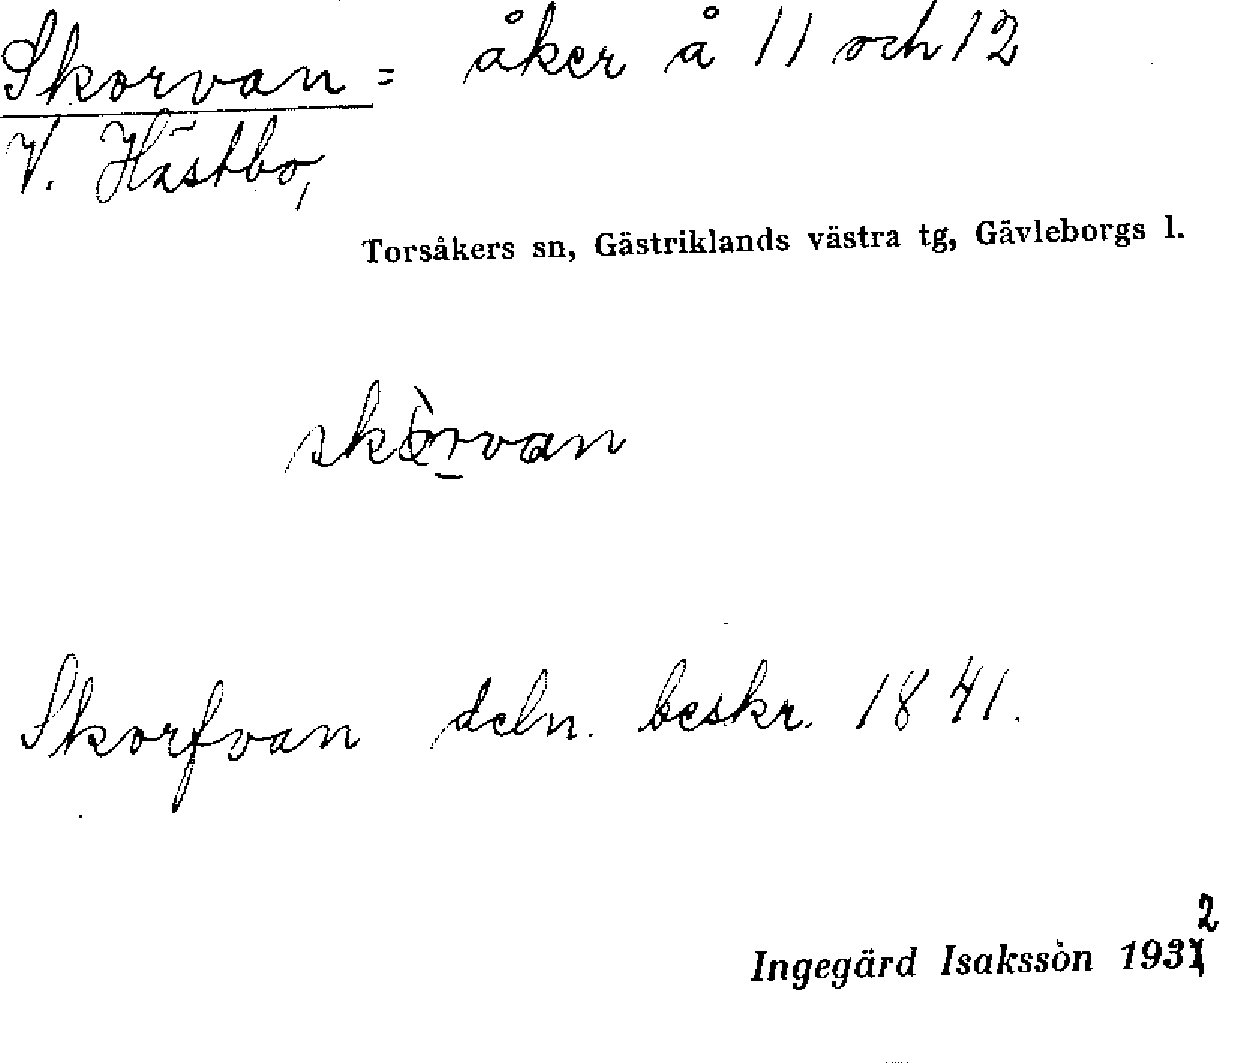 Skorvan = åker å 11 och 12
V. Hästbo,
Torsåkers sn, Gästriklands västra tg, Gävleborgs l.
skòrvan
Skorfvan deln. beskr. 1841.
2
Ingegärd Isaksson 1931